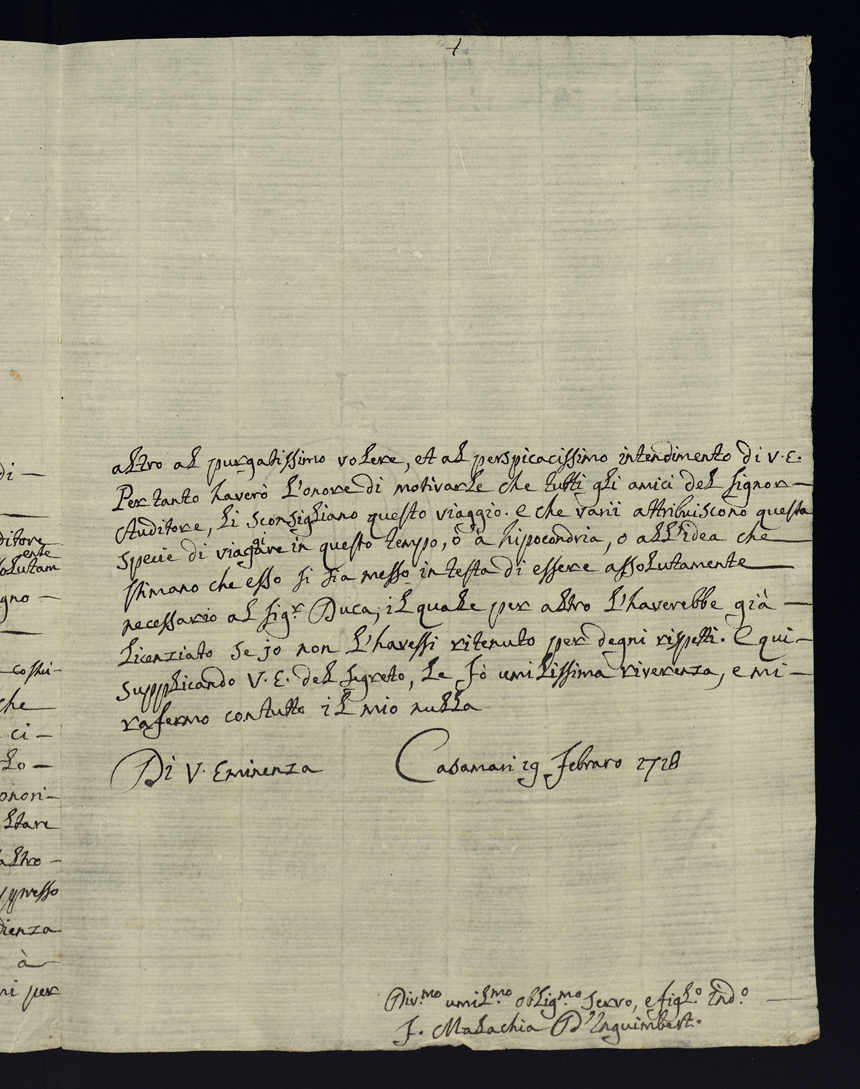 4
altro al purgatissimo volere, et al perspicacissimo intendimento di V. E.
Per tanto haverò l'onore di motivarle che tutti gli amici del signor
Auditore, li sconsigliano questo viaggio. e che varii attribuiscono questa
specie di viagiare in questo tempo, ò à hipocondria, o all'idea che
stimano che esso si sia messo in testa di essere assolutamente
necessario al sigr. Duca, il quale per altro l'haverebbe già
licenziato se io non l'havessi ritenuto per degni rispetti. E qui
supplicando V. E. del segreto, le fò umilissima riverenza, e mi
rafermo con tutto il mio nulla
Di V. Eminenza Casamari 29 febraro 1728
Div.mo umil.mo oblig.mo servo, e figl.o Ind.o
F. Malachia D'Inguimbert.
di
ditore
ente
solutam
gno
che
ci
lo
onori
ltare
altro
dienza
à
ni per